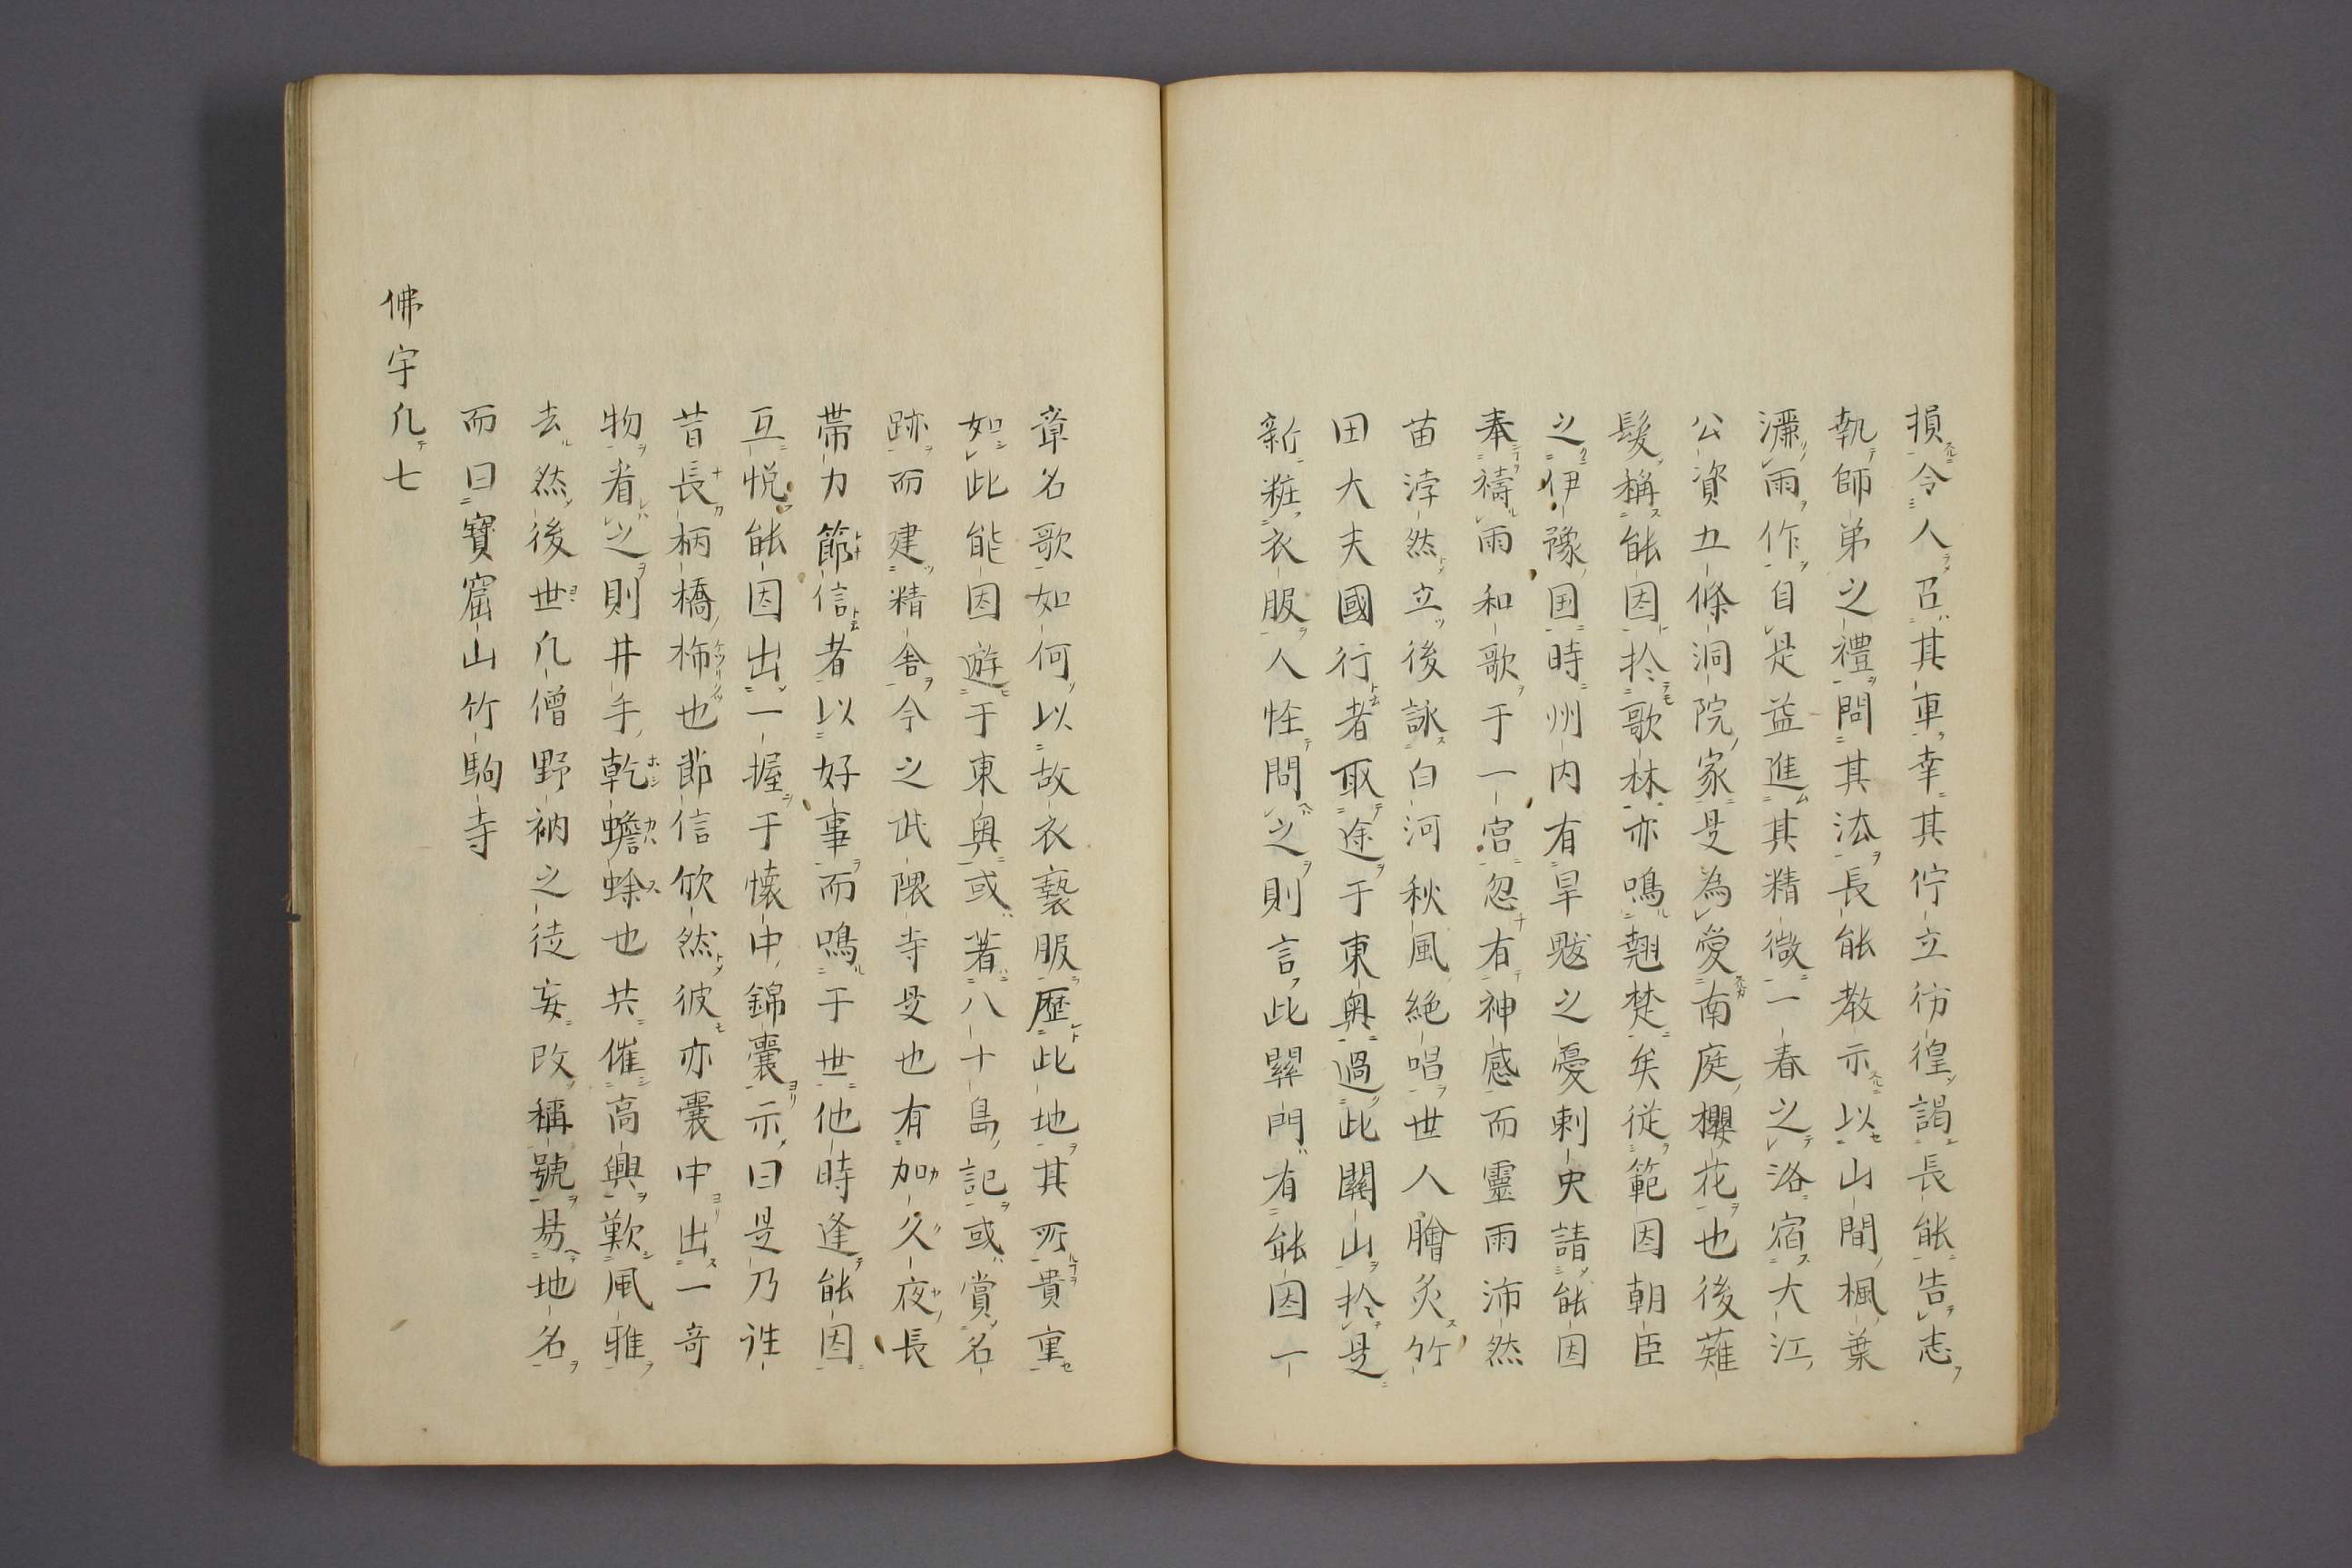 損令人召其車幸其佇立彷徨謁長能告志
執師弟之禮問其法長能教示以山間楓葉
濔雨作自是益進其精微一春之洛宿大江
公資五條洞院家是為愛南庭櫻花也後薙
髪稱能因於歌林亦鳴翹楚矣従範因朝臣
之伊豫国時州内有旱魃之憂刺史請能因
奉禱雨和歌于一宮忽有神感而靈雨沛然
苗浡然立後詠白河秋風絶唱世人膾炙竹
田大夫國行者取途于東奥過此關山於是
新粧衣服人恠問之則言此關門有能因一
章名歌如何以故衣褻服歴此地其所貴重
如此能因遊于東奥或著八十島記或賞名
跡而建精舎今之武隈寺是也有加久夜長
帯力節信者以好事而鳴于世他時逢能因
互悦能因出一握于懐中錦嚢示曰是乃往
昔長柄橋柹也節信欣然彼亦嚢中出一奇
物者之則井手乾蟾蜍也共催高興歎風雅
去然後世凡僧野衲之徒妄改稱號易地名
而曰寳窟山竹駒寺
佛宇凡七